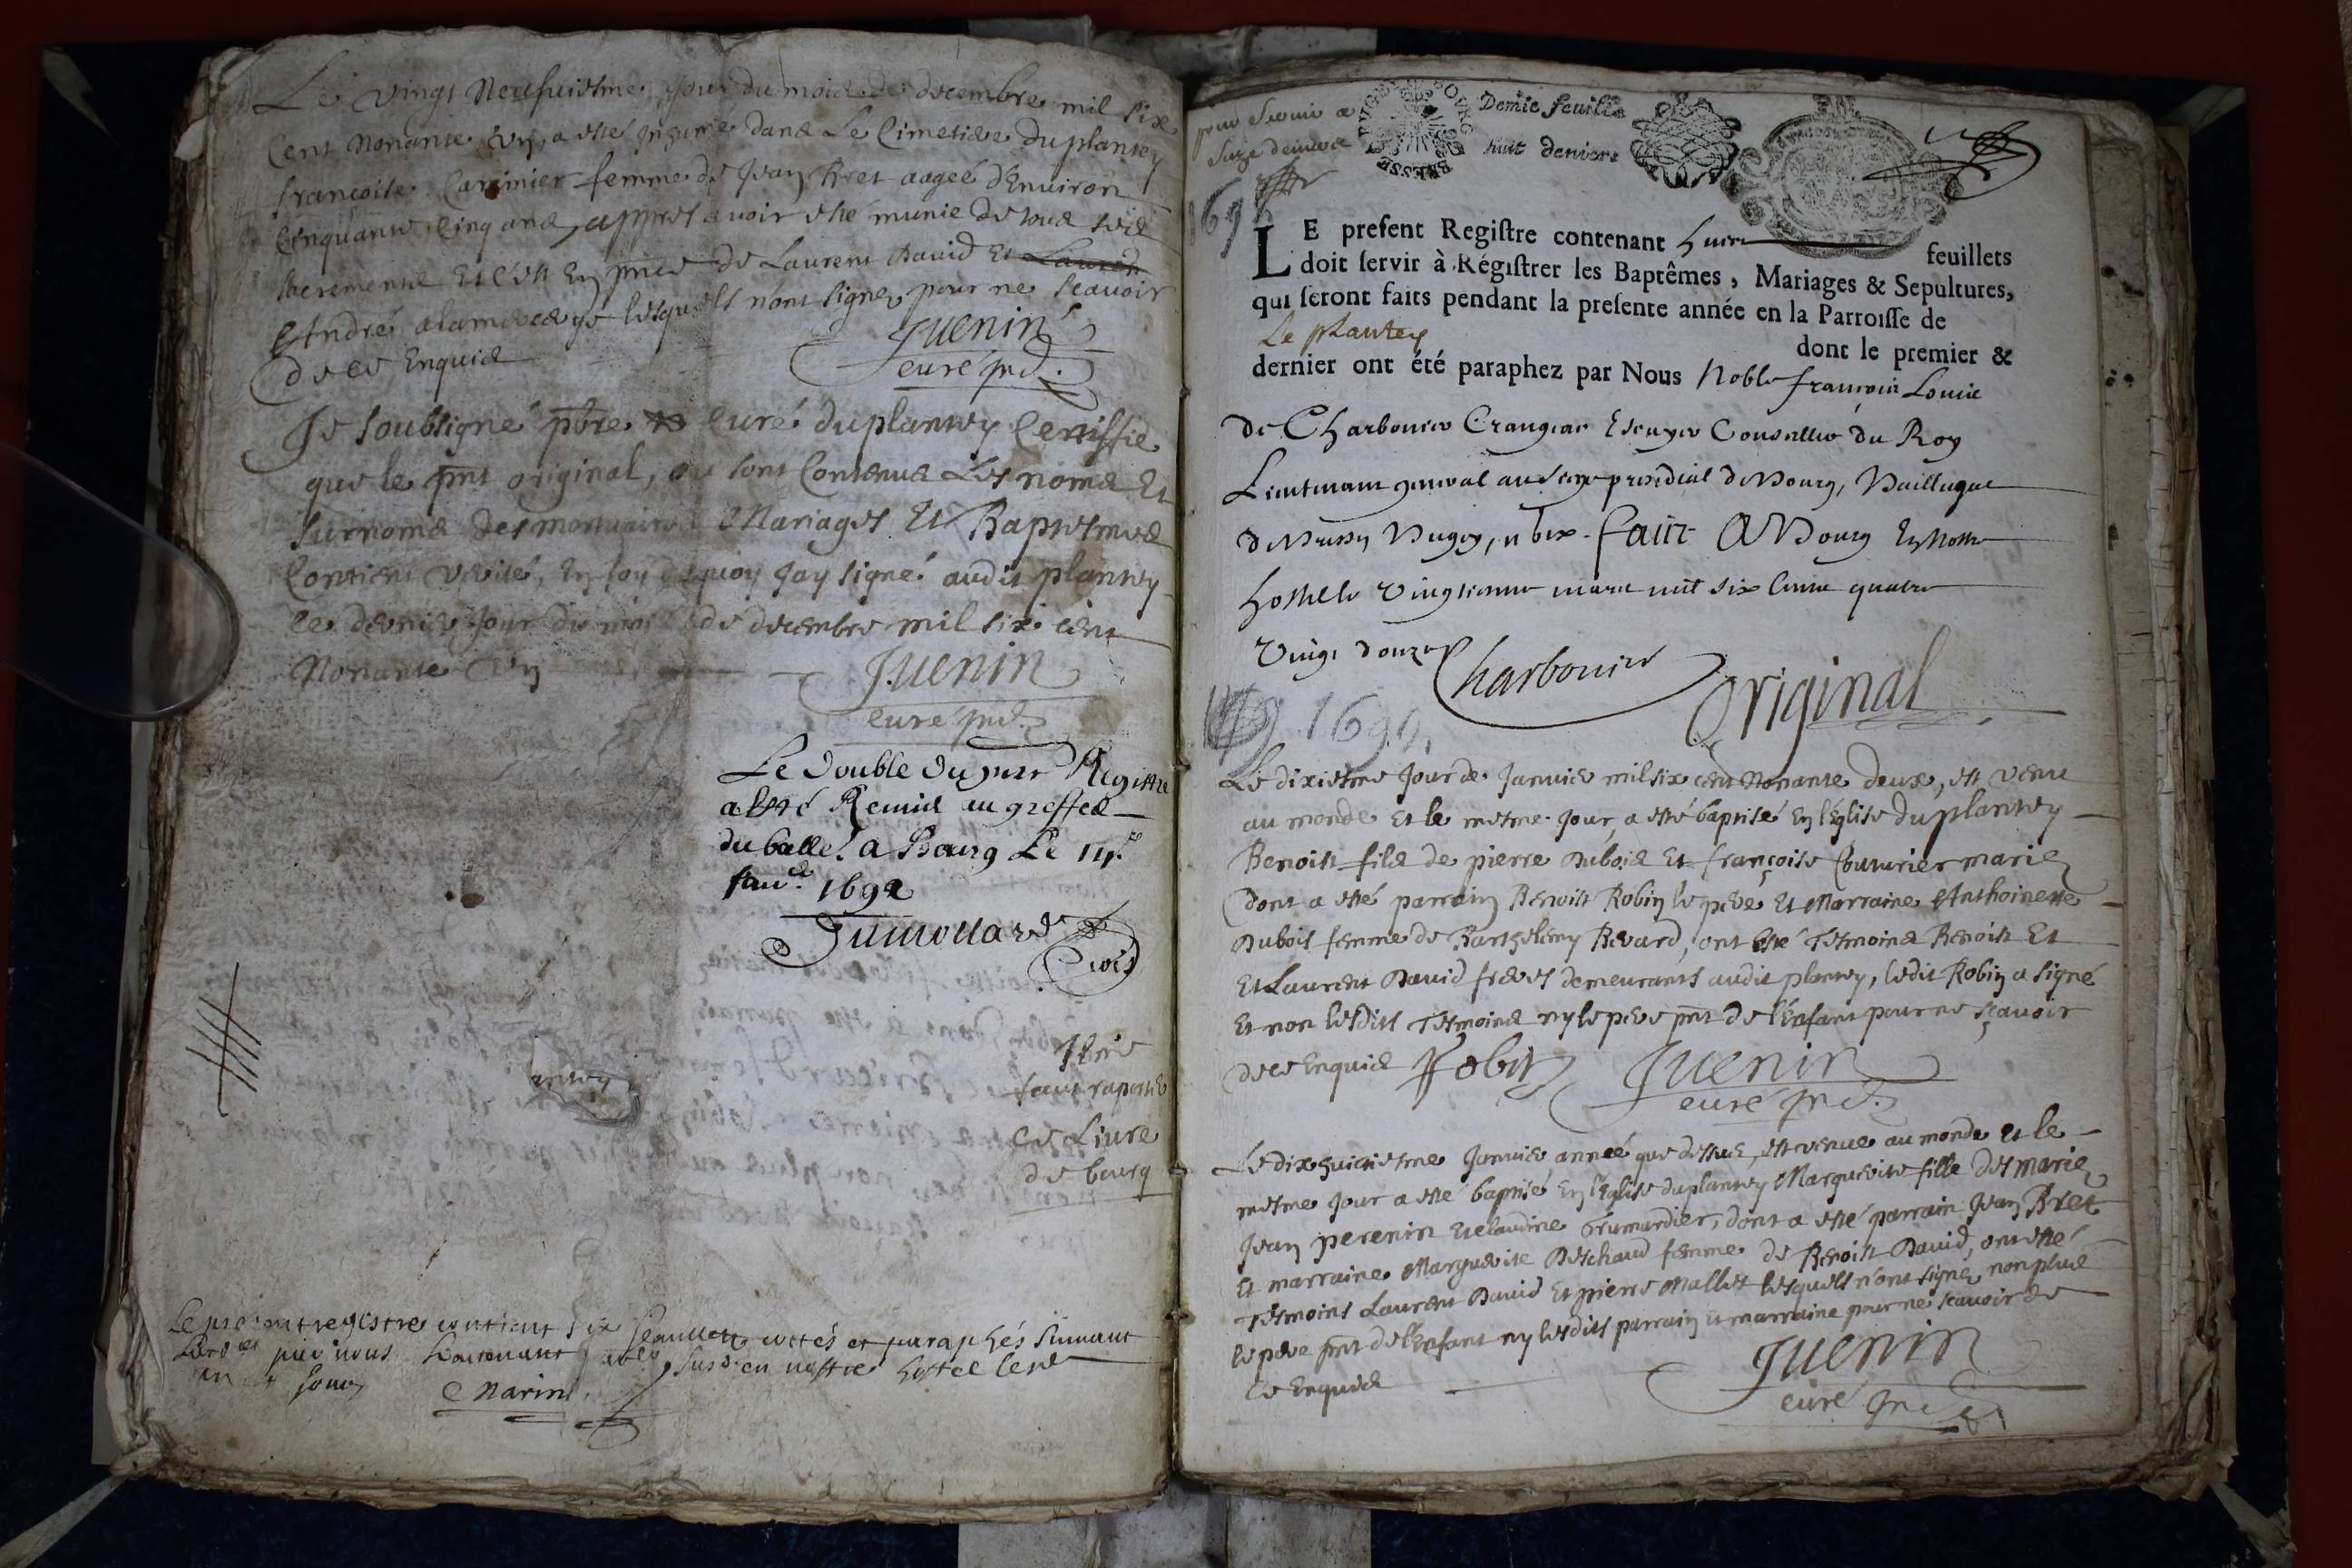 Le vingt Neufuiesme jour du mois de decembre mil six
Cent Nonante vn, a esté Inhumé dans Le Cimetiere du plantey
francoise Carimier femme de Jean Bret aagée d'Enuiron
Cinquante Cinq ans, appres auoir esté munie de tous ses
sacrements Et c'est En pnce de Laurent Dauid Et Laurent
André lesquels n'ont signez pour ne scauoir
de ce Enquis
Juenin
curé
Je soubsigné pbre curé du plantey Certiffie
que le pnt original, ou sont Contenus Les noms Et
surnoms des mortuaires Mariages Et Baptesmes
Contient verité, En foy dequoy Jay signé audit plantey
le dernier Jour du mois de decembre mil six cent
Nonante vn
Juenin
curé
Le double du pnt Registre
a Esté Remis au greffe
du balle. a Bourg Le
Januer 1692
faut raporter
ce Liure
de bourg
Le present registre contient six feauillets cottés et paraphés suiuant
par nous Lieutenant susd. en nostre hostel le
Marini
pour seruir a
seize deniers
Demie feuille
huit deniers
BRESSE
169
LE present Registre contenant huit feuillets
doit servir à Régistrer les Baptêmes, Mariages & Sepultures,
qui seront faits pendant la presente année en la Parroisse de
Le plantey dont le premier &
dernier ont été paraphez par Nous Noble françois Louis
de Charbonier Crangeac Escuyer Conseiller du Roy
Lieutenant general au siege presidial de Bourg, Bailliage
de Bresse Bugey, Fait A Bourg En Nostre
hostel le vingtieme mars mil six Cents quatre
vingt douze Charbonier
Original
1690
Le dixiesme Jour de Januier mil six cent Nonante deux, est venu
au monde Et le mesme Jour a esté baptisé En l'Eglise du plantey
Benoist fils de pierre Dubois Et françoise Couturier mariez
dont a esté parrain Benoist Robin le pere Et Marraine Anthoinette
Dubois femme de Barthelemy Reuard, ont Esté Tesmoins Benoist Et
Et Laurent Dauid freres demeurants audit plantey, ledit Robin a signé
Et non lesdits Tesmoins ny le pere pnt de l'Enfant pour ne sçauoir
de ce Enquis Robin Juenin
curé
Le dix huictiesme Januier année que dessus, est venue au monde Et le
mesme Jour a esté baptisé En l'Eglise du plantey Marguerite fille des mariez
Jean perenin Et claudine Grumardier, dont a esté parrain Jean Bret
Et marraine Marguerite Deschaud femme de Benoist Dauid, ont esté
Tesmoins Laurent Dauid Et pierre Mallet lesquels n'ont signez non plus
le pere pnt de l'Enfant ny lesdits parrain Et marraine pour ne scauoir de
ce Enquis
Juenin
curé